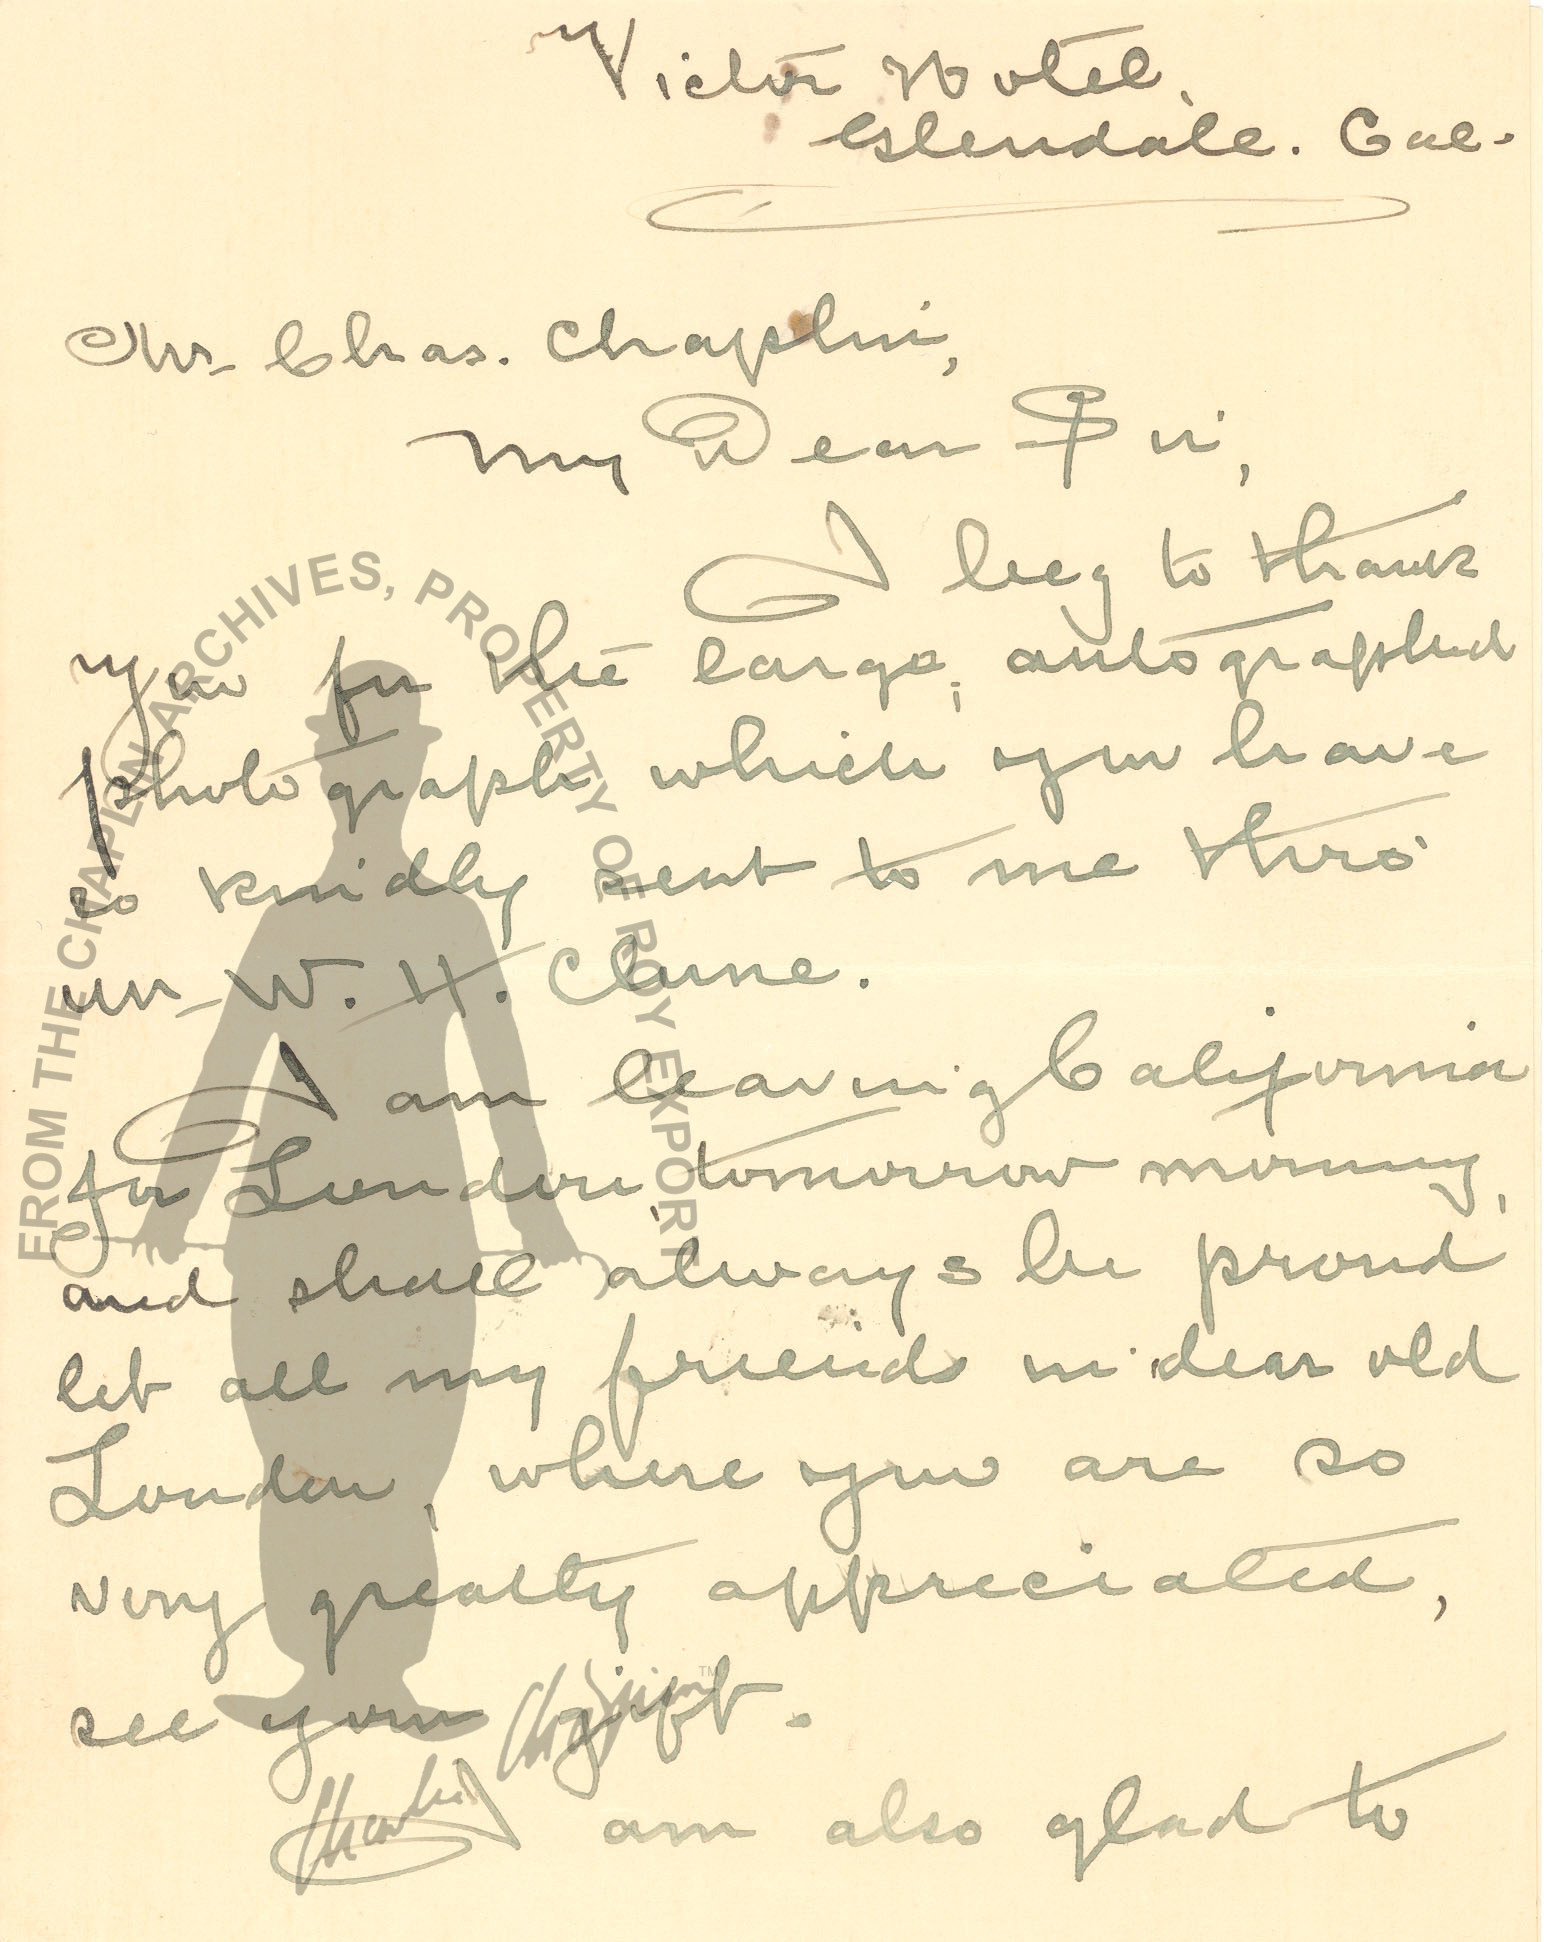 Victor Hotel,
Glendale. Cal.
Mr. Chas. Chaplin,
My Dear Sir,
I beg to thank
you for the large, autographed
photograph which you have
so kindly sent to me thro'
Mr. W. H. Clune.
I am leaving California
for London, tomorrow morning,
and shall always be proud
let all my friends in dear old
London, where you are so
very greatly appreciated,
see your gift.
I am also glad to
FROM THE CHAPLIN ARCHIVES, PROPERTY OF ROY EXPORT
Charlie Chaplin™